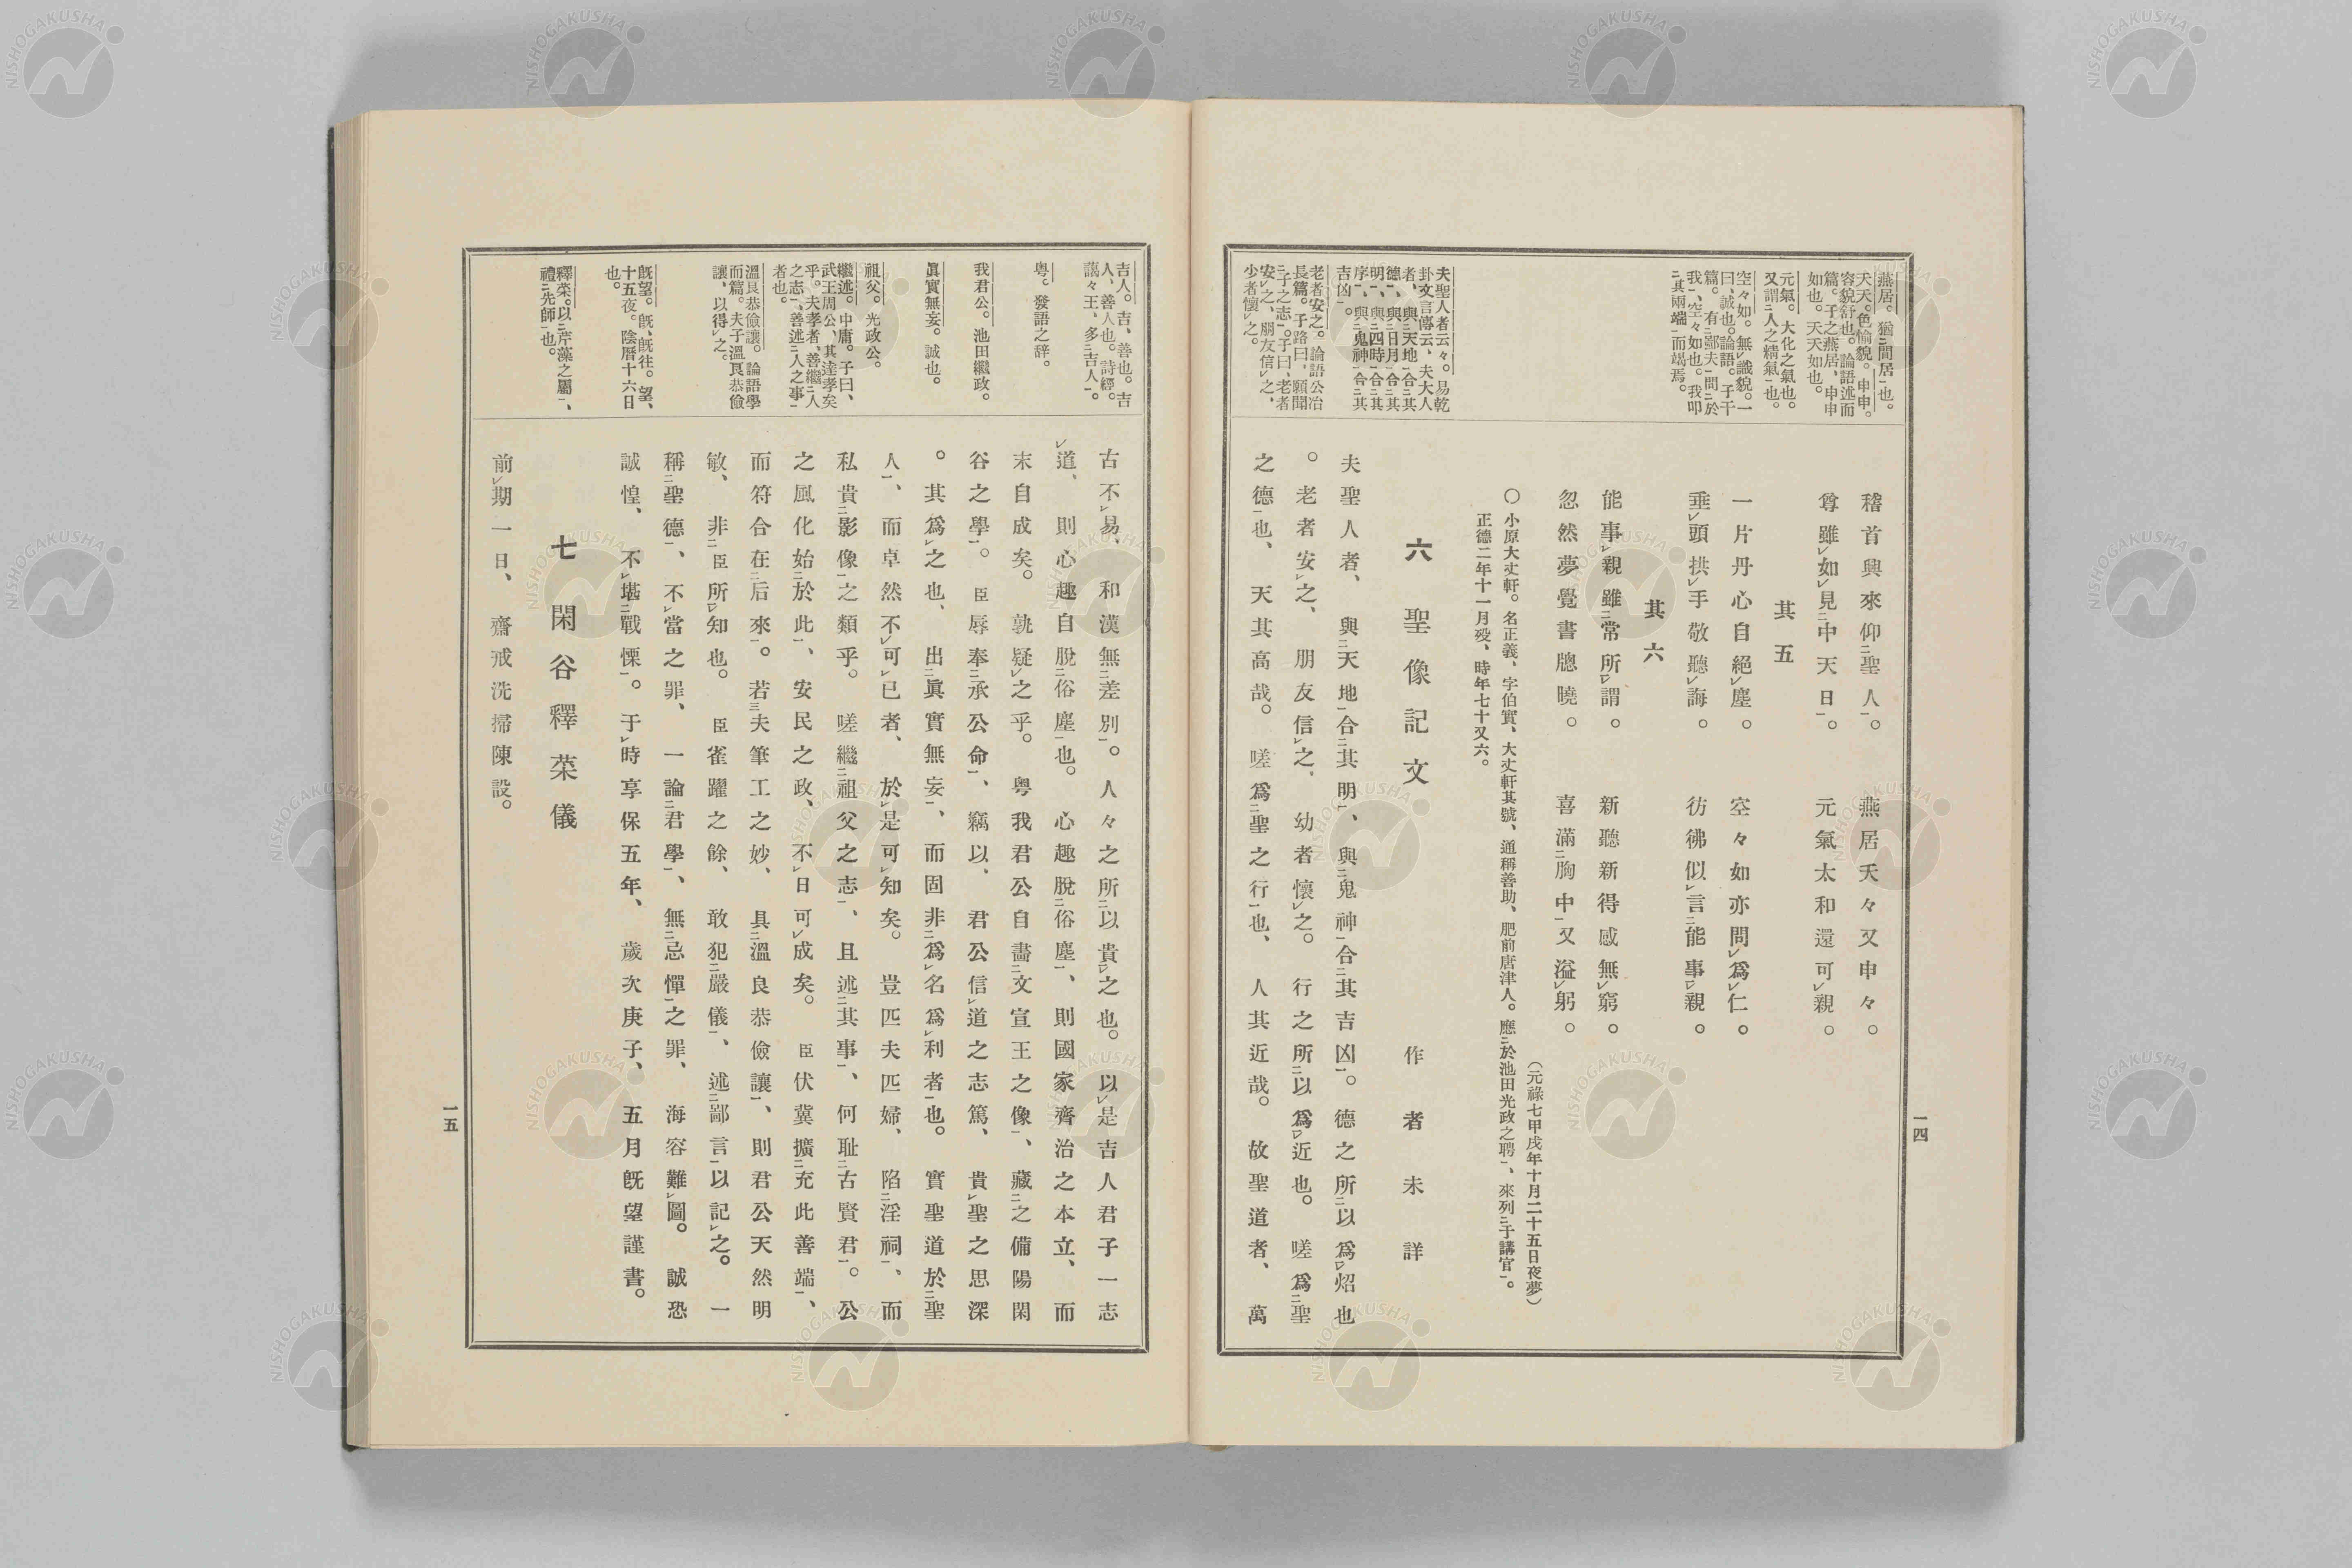 燕居。猶㆓間居㆒也。
夭夭。色愉貌。申申。
容貌舒也。論語述而
篇。子之燕居、申申
如也。夭夭如也。
元氣。大化之氣也。
又謂㆓人之精氣㆒也。
空々如。無㆑識貌。一
曰、誠也。論語。子干
篇。有㆓鄙夫㆒問㆓於
我㆒、空々如也。我叩
㆓其兩端㆒而竭焉。
夫聖人者云々。易乾
卦文言傳云、夫大人
者、與㆓天地㆒合㆓其
德㆒、與㆓日月㆒合㆓其
明㆒、與㆓四時㆒合㆓其
序㆒、與㆓鬼神㆒合㆓其
吉凶㆒。
老者安之。論語公冶
長篇。子路曰、願聞
㆓子之志㆒。子曰、老者
安㆑之、朋友信㆑之、
少者懷㆑之。
稽首興來仰㆓聖人㆒。　燕居夭々又申々。
尊雖㆑如㆑見㆓中天日㆒。　元氣太和還可㆑親。
其五
一片丹心自絕㆑塵。　空々如亦問㆑爲㆑仁。
垂㆑頭拱㆑手敬聽㆑誨。　彷彿似㆑言㆓能事親㆒。
其六
能事㆑親雖㆓常所㆒㆑謂。　新聽新得感無㆑窮。
忽然夢覺書牕曉。　喜滿㆓胸中㆒又溢㆑躬。
（元祿七甲戌年十月二十五日夜夢）
○小原大丈軒。名正義、字伯實、大丈軒其號、通稱善助、肥前唐津人。應㆓於池田光政之聘㆒、來列㆓于講官㆒。
正德二年十一月歿、時年七十又六。
六　聖像記文　作者未詳
夫聖人者、與㆓天地㆒合㆓其明㆒、與㆓鬼神㆒合㆓其吉凶㆒。德之所㆓以爲㆒㆑炤也
。老者安㆑之、朋友信㆑之、幼者懷㆑之。行之所㆓以爲㆒㆑近也。嗟爲㆓聖
之德㆒也、天其高哉。嗟爲㆓聖之行㆒也、人其近哉。故聖道者、萬
一四
吉人。吉、善也。吉
人、善人也。詩經。
藹々王、多㆓吉人㆒。
粤。發語之辞。
我君公。池田繼政。
眞實無妄。誠也。
祖父。光政公。
繼述。中庸。子曰、
武王周公、其達孝矣
乎。夫孝者、善繼㆓人
之志㆒、善述㆓人之事㆒
者也。
溫良恭儉讓。論語學
而篇。夫子溫良恭儉
讓、以得㆑之。
既望。旣、旣往。望、
十五夜。陰曆十六日
也。
釋菜。以㆓芹藻之屬㆒、
禮㆓先師㆒也。
古不㆑易、和漢無㆓差別㆒。人々之所㆓以貴㆒㆑之也。以㆑是吉人君子一志
㆑道、則心趣自脫㆓俗塵㆒也。心趣脫㆓俗塵㆒、則國家齊治之本立、而
末自成矣。孰疑㆑之乎。粤我君公自畵㆓文宣王之像㆒、藏㆓之備陽閑
谷之學㆒。臣辱奉㆓承公命㆒、竊以、君公信㆑道之志篤、貴㆑聖之思深
。其爲㆑之也、出㆓眞實無妄㆒、而固非㆓爲㆑名爲㆑利者㆒也。實聖道於㆓聖
人㆒、而卓然不㆑可㆑已者、於㆑是可㆑知矣。豈匹夫匹婦、陷㆓淫祠㆒、而
私貴㆓影像㆒之類乎。嗟繼㆓祖父之志㆒、且述㆓其事㆒、何耻㆓古賢君㆒。公
之風化始㆓於此㆒、安民之政、不㆑日可㆑成矣。臣伏冀擴㆓充此善端㆒、
而符合在㆓后來㆒。若㆔夫筆工之妙、具㆓溫良恭儉讓㆒、則君公天然明
敏、非㆓臣所㆒㆑知也。臣雀躍之餘、敢犯㆓嚴儀㆒、述㆓鄙言㆒以記㆑之。一
稱㆓聖德㆒、不㆑當之罪、一論㆓君學㆒、無㆓忌憚㆒之罪、海容難㆑圖。誠恐
誠惶、不㆑堪㆓戰慄㆒。于㆑時享保五年、歲次庚子、五月旣望謹書。
七　閑谷釋菜儀
前㆑期一日、齋戒洗掃陳設。
一五
NISHOGAKUSHA